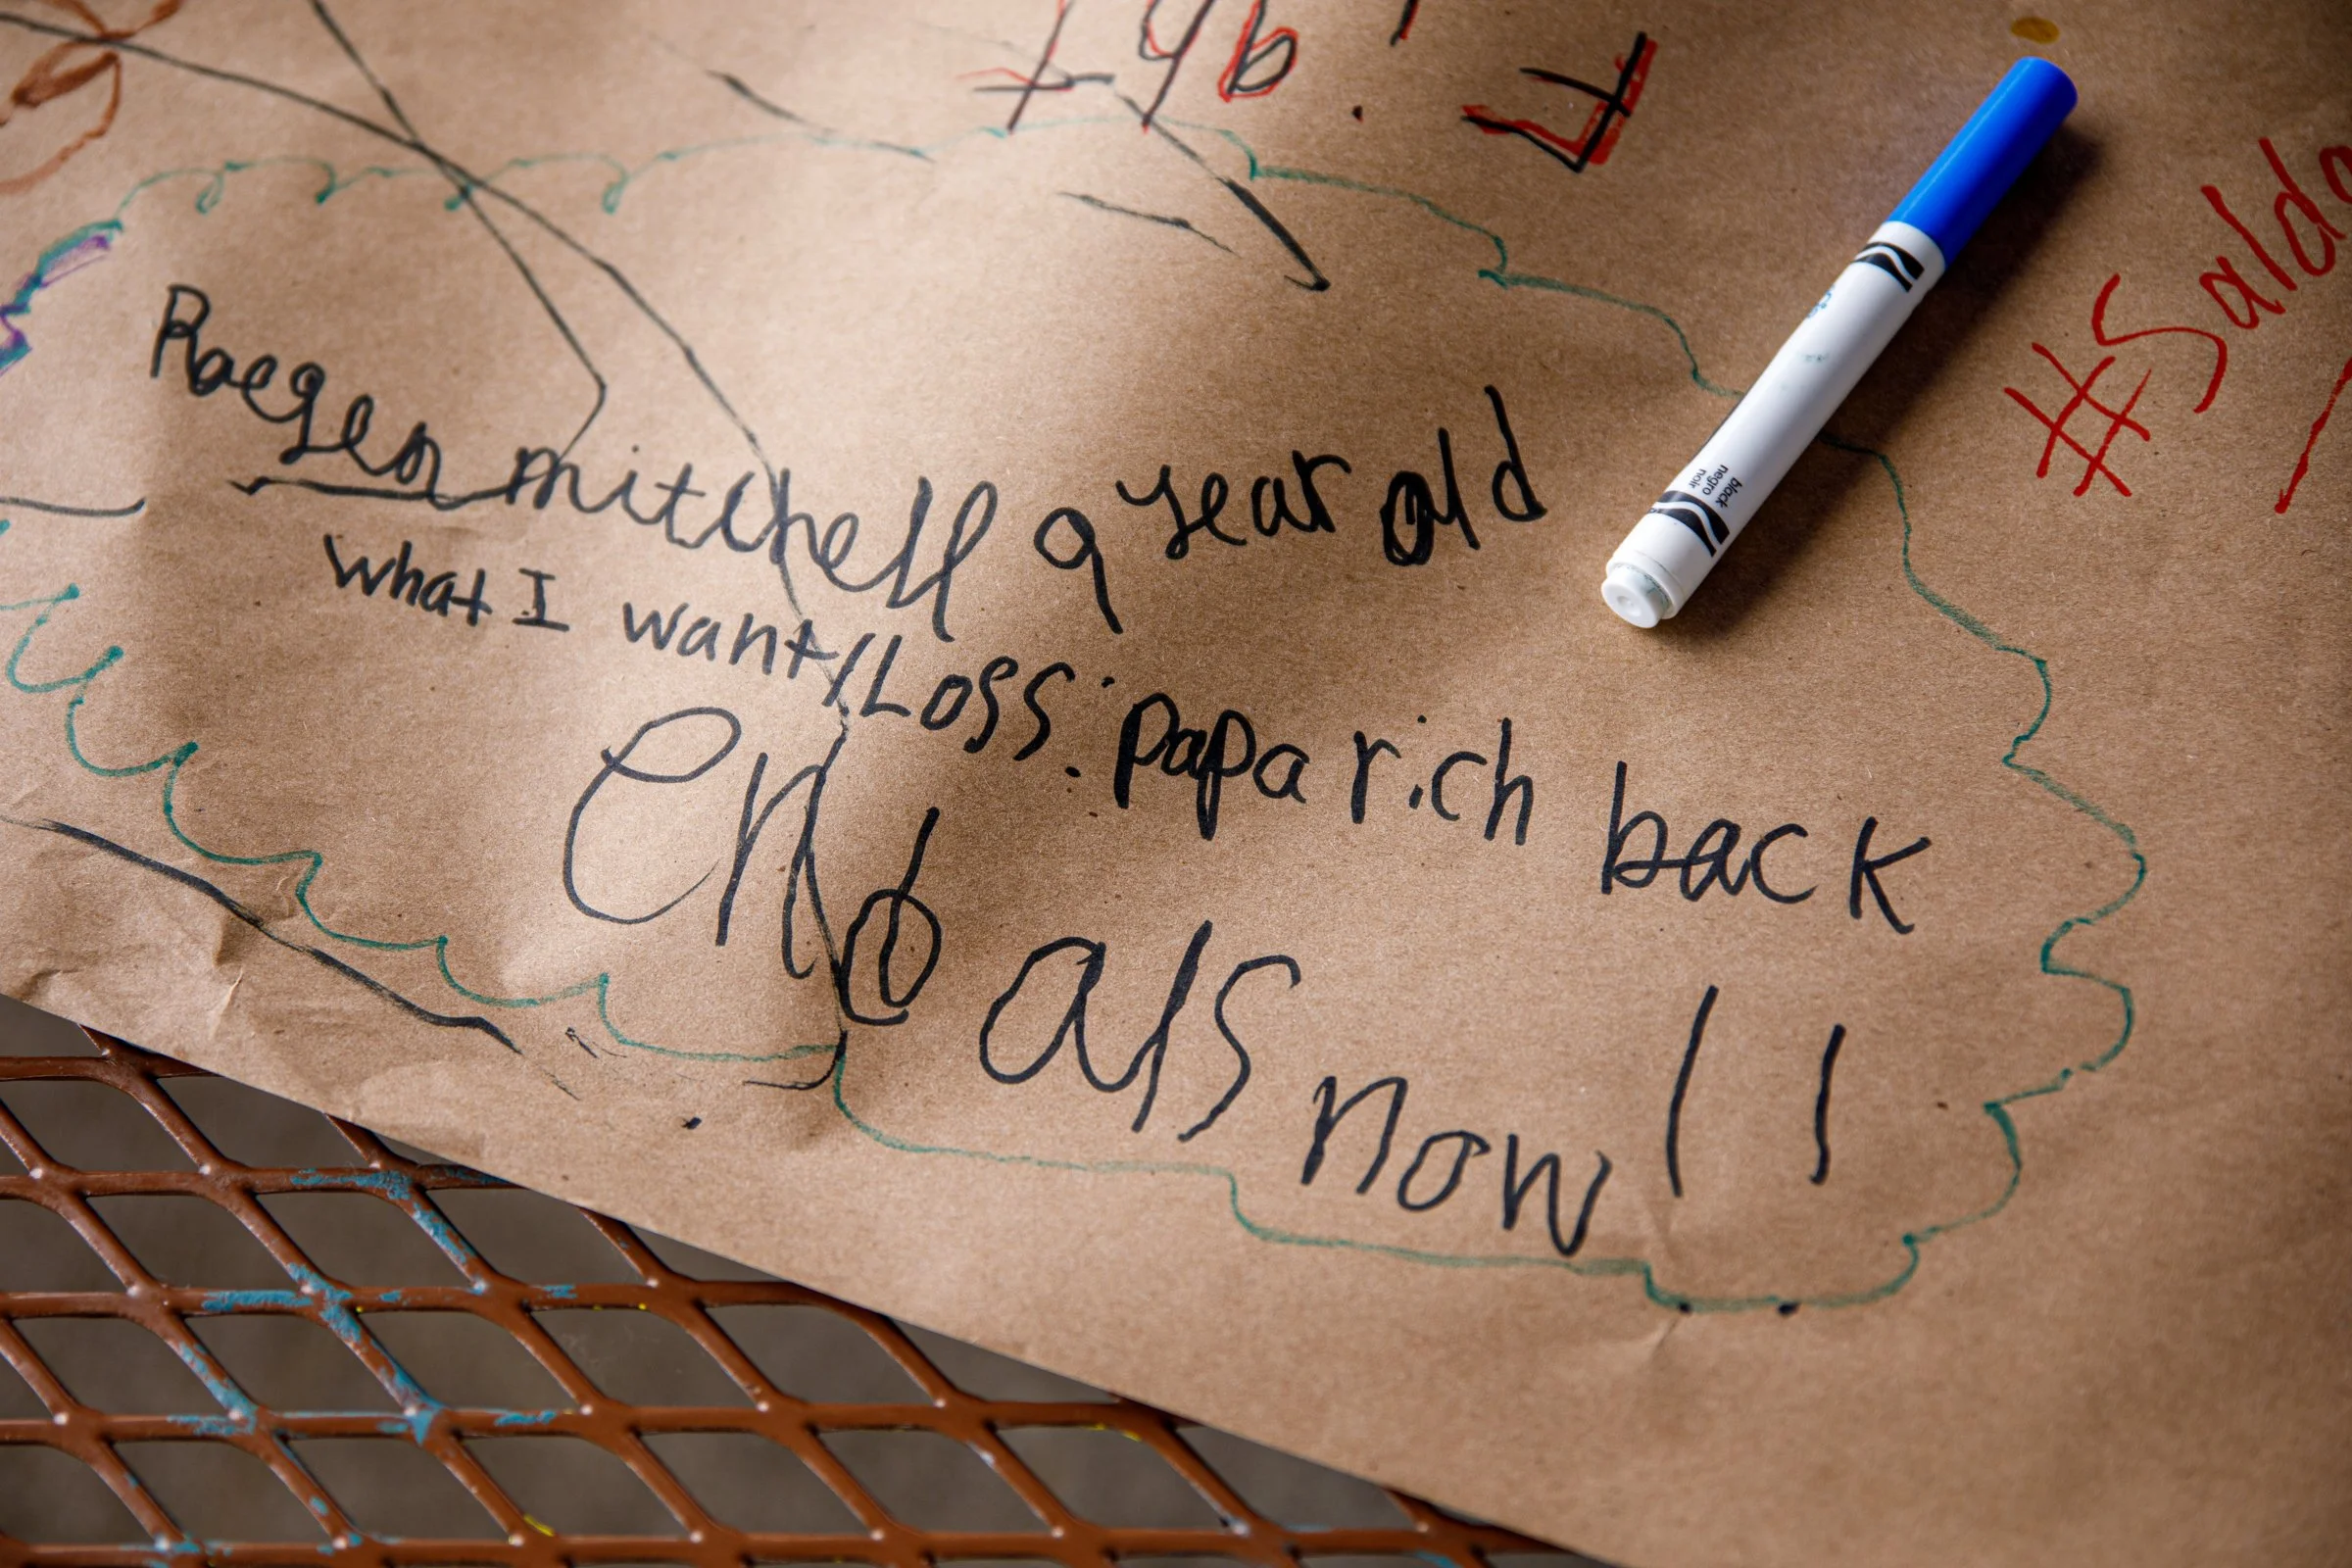 Raegen mitchell 9 year old
What I want/Loss: papa rich back
end als now!!
#Saldo
black
negro
noir